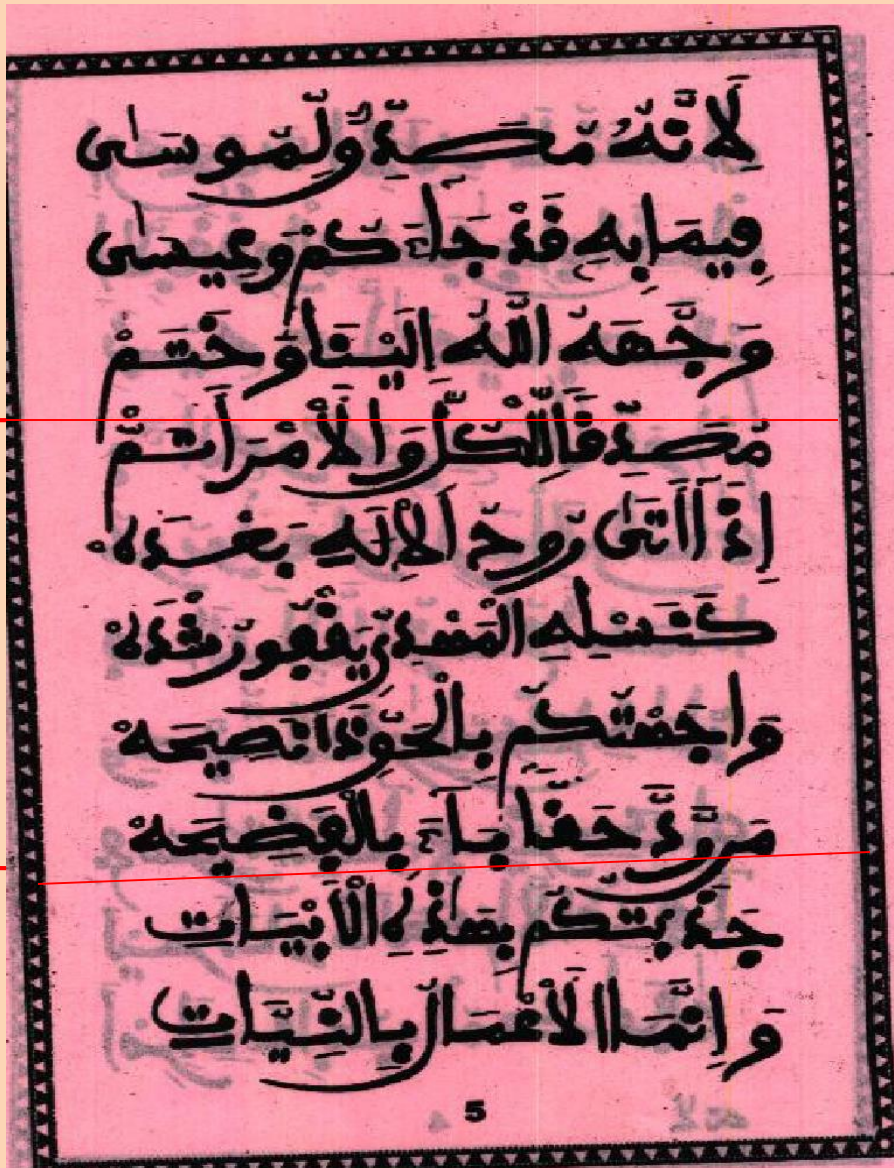 لِأَنَّهُ مُصَدِّقٌ لِّمُوسَى
فِيمَا بِهِ قَدْ جَاءَكُمْ وَعِيسَى
وَجَّهَهُ اللَّهُ إِلَيْنَا وَخَتَمْ
مُصَدِّقًا لِّلْكُلِّ وَالْأَمْرَ أَتَمْ
إِذَا أَتَى رُوحُ الْإِلَهِ بَعْدَهُ
كَنَسْلِهِ الْمَهْدِيِّ يَقْفُو رُشْدَهُ
وَاجَهْتُكُمْ بِالْحَقِّ ذَا نَصِيحَهْ
مَن رَّدَّ حَقًّا بَاءَ بِالْفَضِيحَهْ
جَذَبْتُكُمْ بِهَذِهِ الْأَبْيَاتِ
وَإِنَّمَا الْأَعْمَالُ بِالنِّيَّاتِ
5